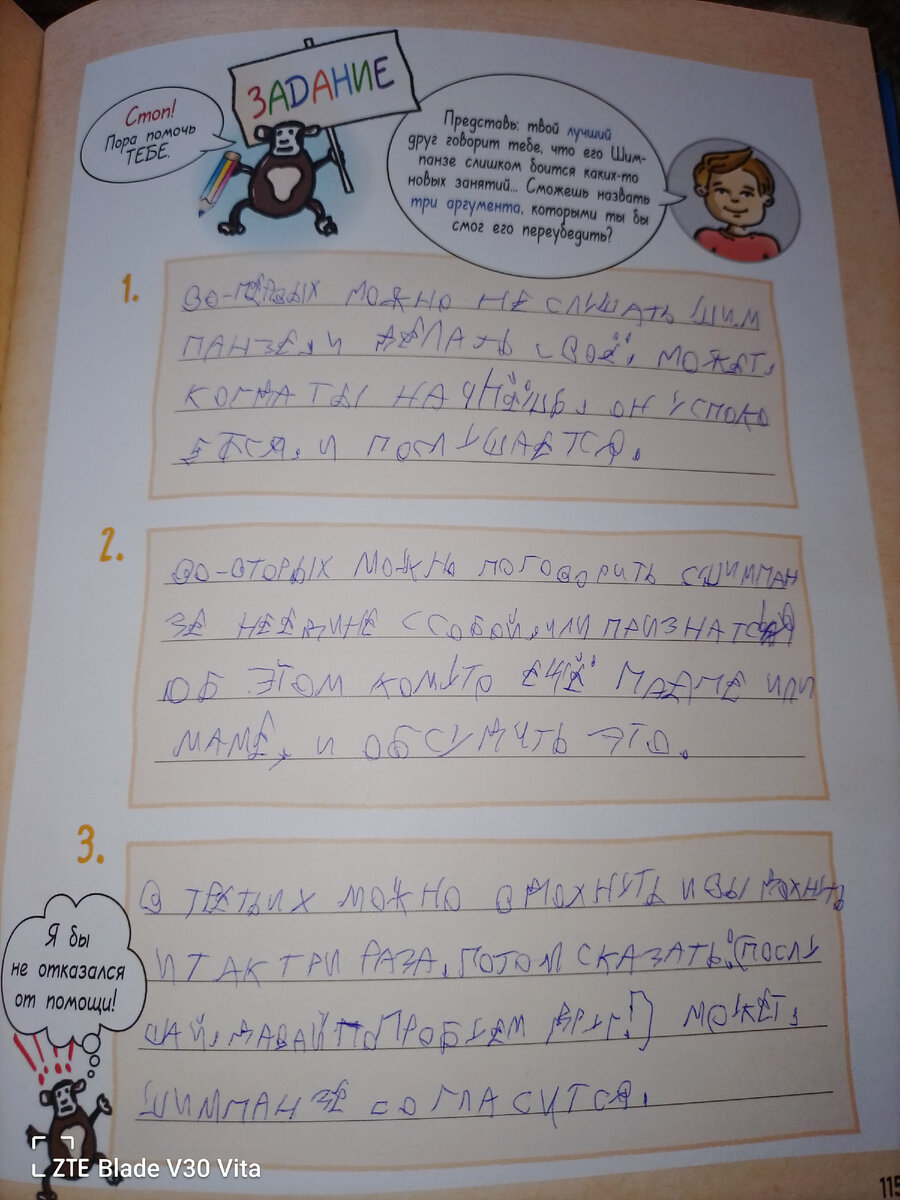 ЗАДАНИЕ
Стоп!
Пора помочь
ТЕБЕ.
Представь: твой лучший
друг говорит тебе, что его Шим-
панзе слишком боится каких-то
новых занятий... Сможешь назвать
три аргумента, которыми ты бы
смог его переубедить?
1.
ВО-ПЕРВЫХ МОЖНО НЕ СЛУШАТЬ ШИМ
ПАНЗЕ, И ДЕЛАТЬ СВОЁ, МОЖЕТ,
КОГДА ТЫ НАЧНЁШЬ, ОН УСПОКО
ЕТСЯ, И ПОСЛУШАЕТСЯ.
2.
ВО-ВТОРЫХ МОЖНО ПОГОВОРИТЬ СШИМПАН
ЗЕ НЕЕДИНЕ ССОБОЙ, ИЛИ ПРИЗНАТСЯ
ОБ ЭТОМ КОМУТО ЕЩЁ ПАПЕ ИЛИ
МАМЕ, И ОБСУДИТЬ ЭТО.
3.
В ТРЕТЬИХ МОЖНО ВДОХНУТЬ И ВЫДОХНУТЬ
И ТАК ТРИ РАЗА, ПОТОМ СКАЗАТЬ: (ПОСЛУ
ШАЙ, ДАВАЙ ПОПРОБУЕМ ДРУГ!) МОЖЕТ,
ШИМПАНЗЕ СОГЛАСИТСЯ.
Я бы
не отказался
от помощи!
ZTE Blade V30 Vita
115